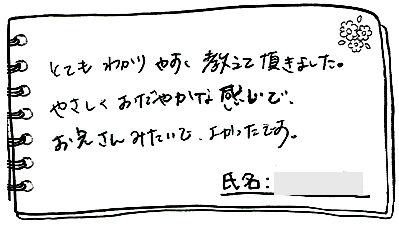 とても わかり やすく 教えて 頂きました。
やさしく おだやかな 感じで、
お兄さん みたいで、よかったです。
氏名: